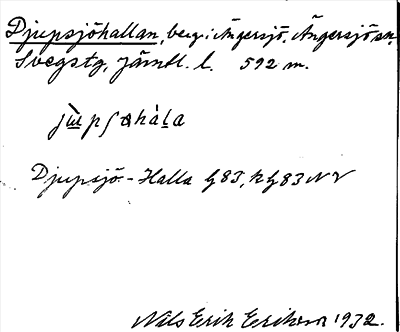 Djupsjöhallan, berg i Ängersjö, Ängersjö sn,
Svegs tg, Jämtl. l. 592 m.
Djupsjö-Halla G83, kG83 NV
Nils Erik Eriksson 1932.